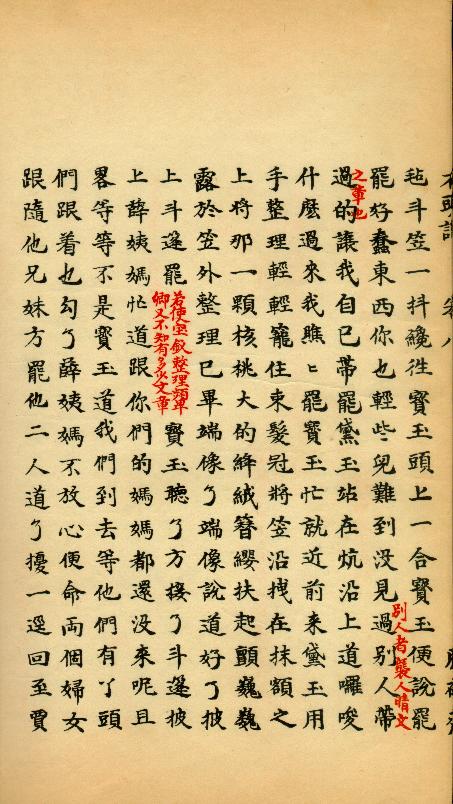 毡斗笠一抖纔徃寶玉頭上一合寶玉便說罷
罷好蠢東西你也輕些兒難到没見過別人帶
別人者襲人晴文
之章也
過的讓我自已帶罷黛玉站在炕沿上道囉唆
什麽過来我瞧〻罷寶玉忙就近前来黛玉用
手整理輕輕籠住束髮冠將笠沿拽在抹額之
上將那一顆核桃大的絳絨簪纓扶起顫巍巍
露於笠外整理已畢端像了端像說道好了披
上斗篷罷
若使宝釵整理顰
卿又不知有多少文章
寶玉聽了方接了斗篷披
上薛姨媽忙道跟你們的媽媽都還没来呢且
畧等等不是寶玉道我們到去等他們有丫頭
們跟着也勾了薛姨媽不放心便命両個婦女
跟隨他兄妹方罷他二人道了擾一逕回至賈